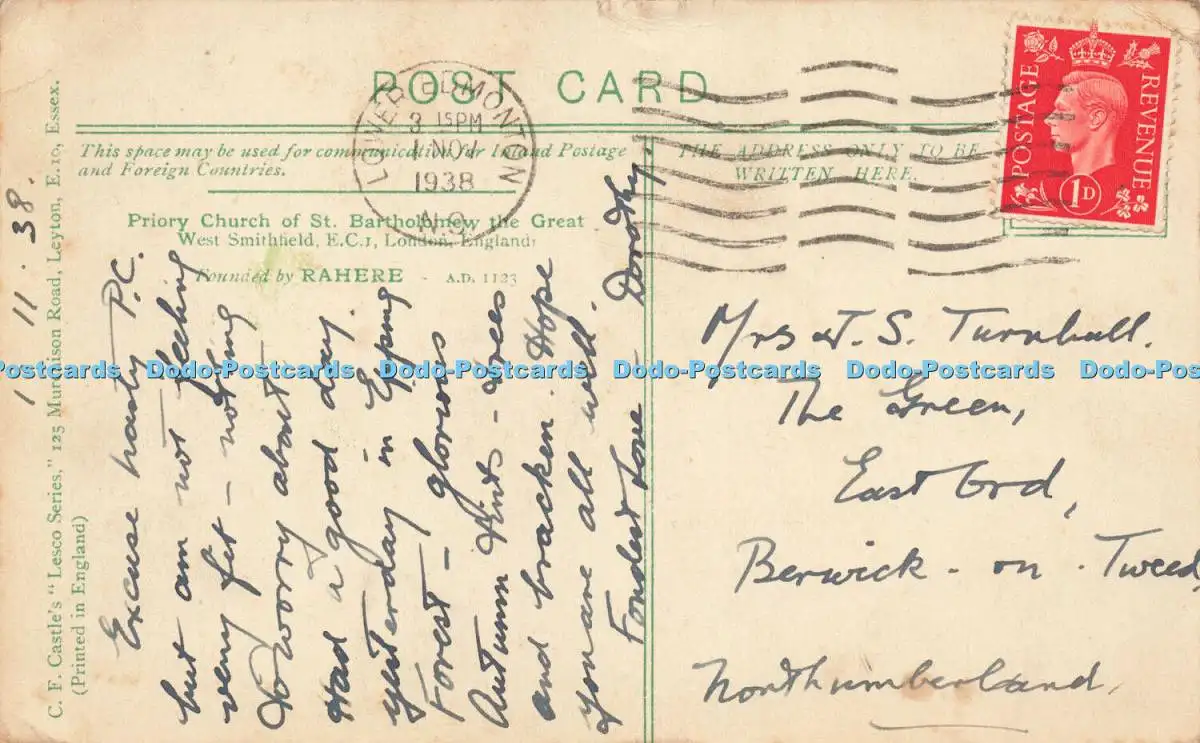 POST CARD
LOWER EDMONTON
3 15PM
1 NOV
1938
N.9
POSTAGE
REVENUE
1D
This space may be used for communication for Inland Postage
and Foreign Countries.
THE ADDRESS ONLY TO BE
WRITTEN HERE.
Priory Church of St. Bartholomew the Great
West Smithfield, E.C.1, London, England:
Founded by RAHERE - A.D. 1123
C. F. Castle's "Lesco Series," 125 Murchison Road, Leyton, E.10, Essex.
(Printed in England)
1. 11. 38.
Excuse hasty P.C.
but am not feeling
very fit - nothing
to worry about
Had a good day
yesterday in Epping
Forest - glorious
Autumn tints - trees
and bracken. Hope
you are all well.
Fondest love - Dorothy.
Mrs J. S. Turnbull.
The Green,
East Ord,
Berwick - on - Tweed
Northumberland.
Dodo-Postcards Dodo-Postcards Dodo-Postcards Dodo-Postcards Dodo-Postcards